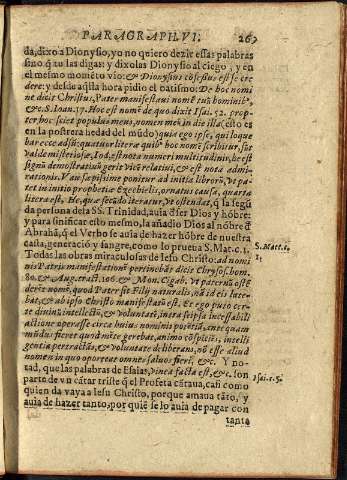 PARAGRAPH. VI. 267
da, dixo a Dionysio, yo no quiero dezir essas palabras
sino q̃ tu las digas: y dixolas Dionysio al ciego, y en
el mesmo momẽto vio: & Dionysius cõfessus est se cre
dere: y desde aq̃lla hora pidio el batismo: De hoc no-
ne dicit Christus, Pater manifestaui nomẽ tuũ hominib⁹,
&c. S. Ioan. 17. Hoc est nomẽ de quo dixit Isai. 52. prop-
ter hoc sciet populus meus, nomen meũ in die illa: esto es
en la postrera hedad del mũdo) quia ego ipse, qui loque
bar ecce adsũ: quatuor literæ quib⁹ hoc nomẽ scribitur, sũt
valde misteriosæ, Iod, est nota numeri multitudinis, he est
signũ demonstratiuũ gerit vicẽ relatiui, & est nota admi-
rationis. Vau sæpissime ponitur ad initia librorũ, vt pa-
tet in initio prophetiæ Ezechielis, ornatus causa, quarta
litera est, He, quæ secũdo iteratur, vt ostendat, q̃ la segũ
da persona de la SS. Trinidad, auia d̃ ser Dios y hõbre:
y para sinificar esto mesmo, la añadio Dios al nõbre d̃
Abrahã, q̃ el Verbo se auia de hazer hõbre de nuestra
casta, generació y sangre, como lo prueba S. Mat. c. 1.
S. Matt. 1.
Todas las obras miraculosas de Iesu Christo: ad nomi
nis Patris manifestationẽ pertinebãt dicit Chrysos. hom.
80. & Aug. tract. 106. & Mon. Cigab. vt paternũ ostẽ
deret nomẽ, quod Pater sit Filij naturalis, nã id eis late-
bat, & ab ipso Christo manifestatũ est. Et ego puto cer-
te diuinũ intellectũ, & voluntatẽ, intra seipsa incessabili
actione operasse circa huius nominis poẽtiã, ante quam
mũdus fieret quod mẽte gerebat, animo cõspicies, intelli
gentia pertractãs, & voluntate deliberans, nõ esse aliud
nomen in quo oporteat omnes saluos fieri, &c. Y no-
tad, que las palabras de Esaias, vinea facta est, &c. son
Isai. c. 5.
parte de vn cãtar triste q̃ el Profeta cãtaua, casi como
quien da vaya a Iesu Christo, porque amaua tãto, y
auia de hazer tanto, por quiẽ se lo auia de pagar con
tanta